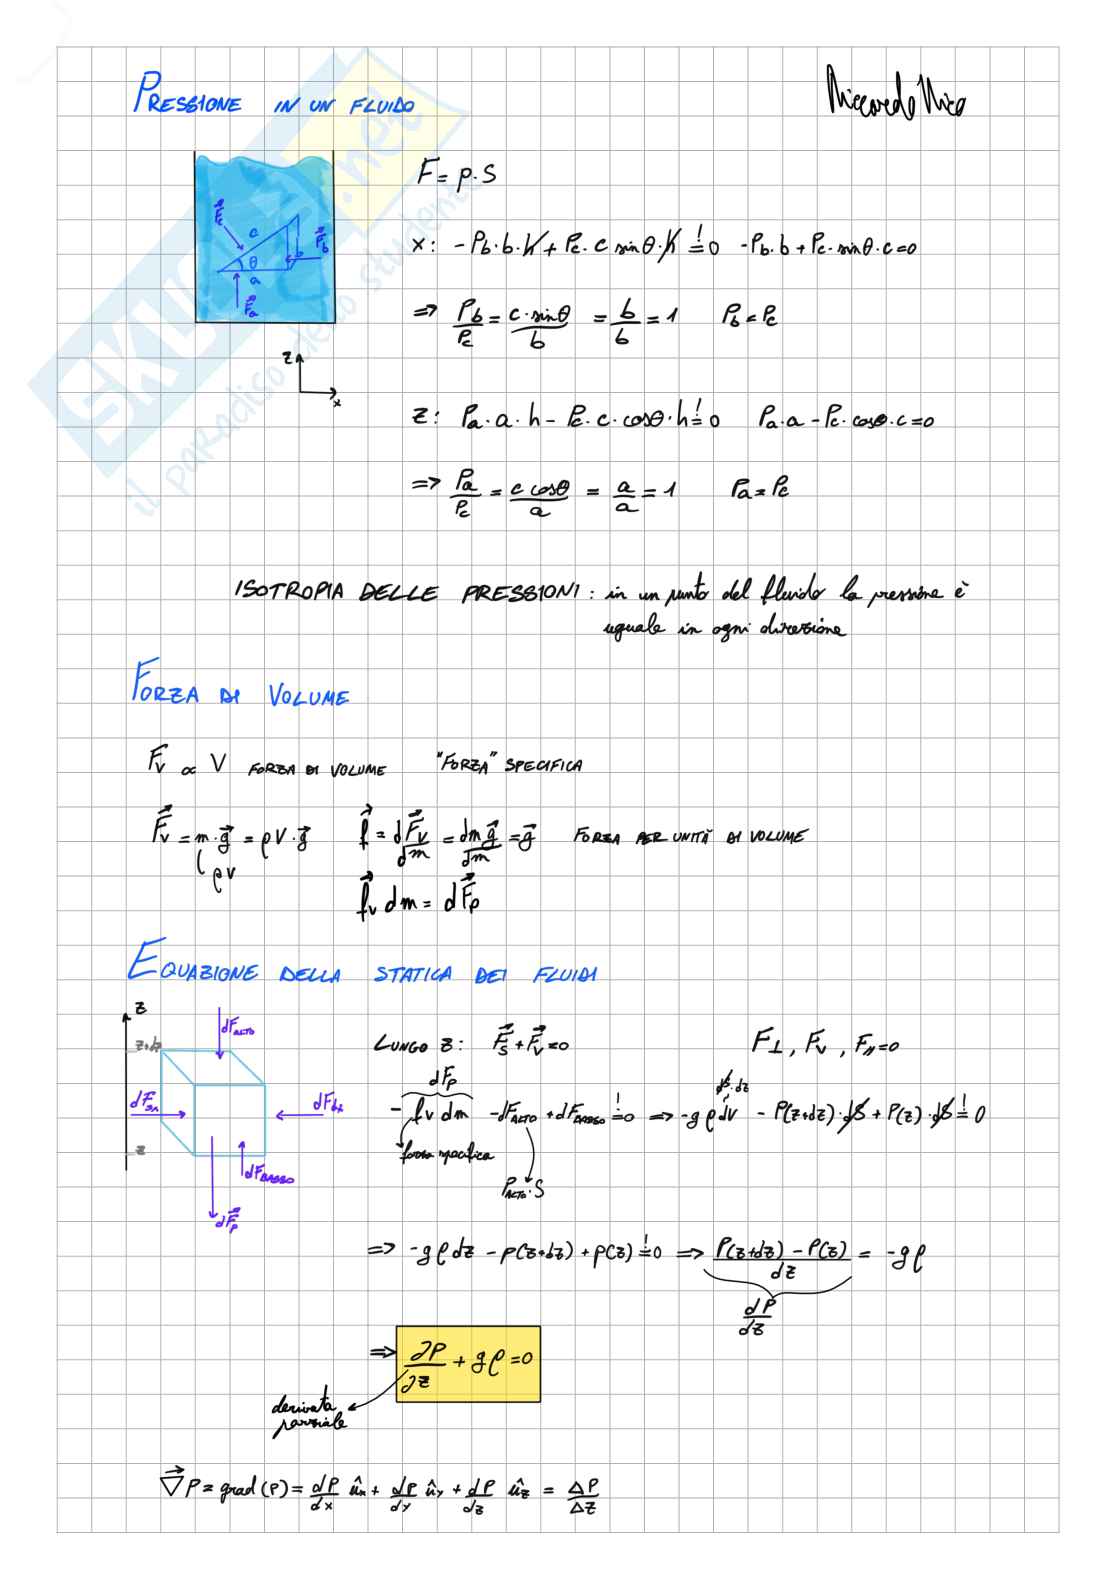 PRESSIONE IN UN FLUIDO
Riccardo Nico
SKUOLA.net
il paradiso dello studente
F = p·S
c
θ
b
a
x: -Pb·b·h + Pc·c sinθ·h != 0 -Pb·b + Pc·sinθ·c = 0
=> Pb/Pc = c·sinθ/b = b/b = 1 Pb = Pc
z
x
z: Pa·a·h - Pc·c·cosθ·h != 0 Pa·a - Pc·cosθ·c = 0
=> Pa/Pc = c cosθ/a = a/a = 1 Pa = Pc
ISOTROPIA DELLE PRESSIONI: in un punto del fluido la pressione è
uguale in ogni direzione
FORZA DI VOLUME
Fv ∝ V FORZA DI VOLUME "FORZA" SPECIFICA
F⃗v = m·g⃗ = ρV·g⃗ f⃗ = dF⃗v/dm = dm g⃗/dm = g⃗ FORZA PER UNITÀ DI VOLUME
ρV
f⃗v dm = dF⃗p
EQUAZIONE DELLA STATICA DEI FLUIDI
z
dFALTO
z+dz
dFsx
dFdx
z
dFBASSO
dF⃗p
LUNGO z: F⃗s + F⃗v = 0 F⊥, Fv, F// = 0
dFp
dS·dz
- fv dm - dFALTO + dFBASSO != 0 => -gρdv - P(z+dz)·dS + P(z)·dS != 0
forza specifica
PALTO·S
=> -gρdz - p(z+dz) + p(z) != 0 => P(z+dz) - P(z)/dz = -gρ
dP/dz
=> ∂P/∂z + gρ = 0
derivata
parziale
∇⃗P = grad(P) = dP/dx ûx + dP/dy ûy + dP/dz ûz = ΔP/Δz